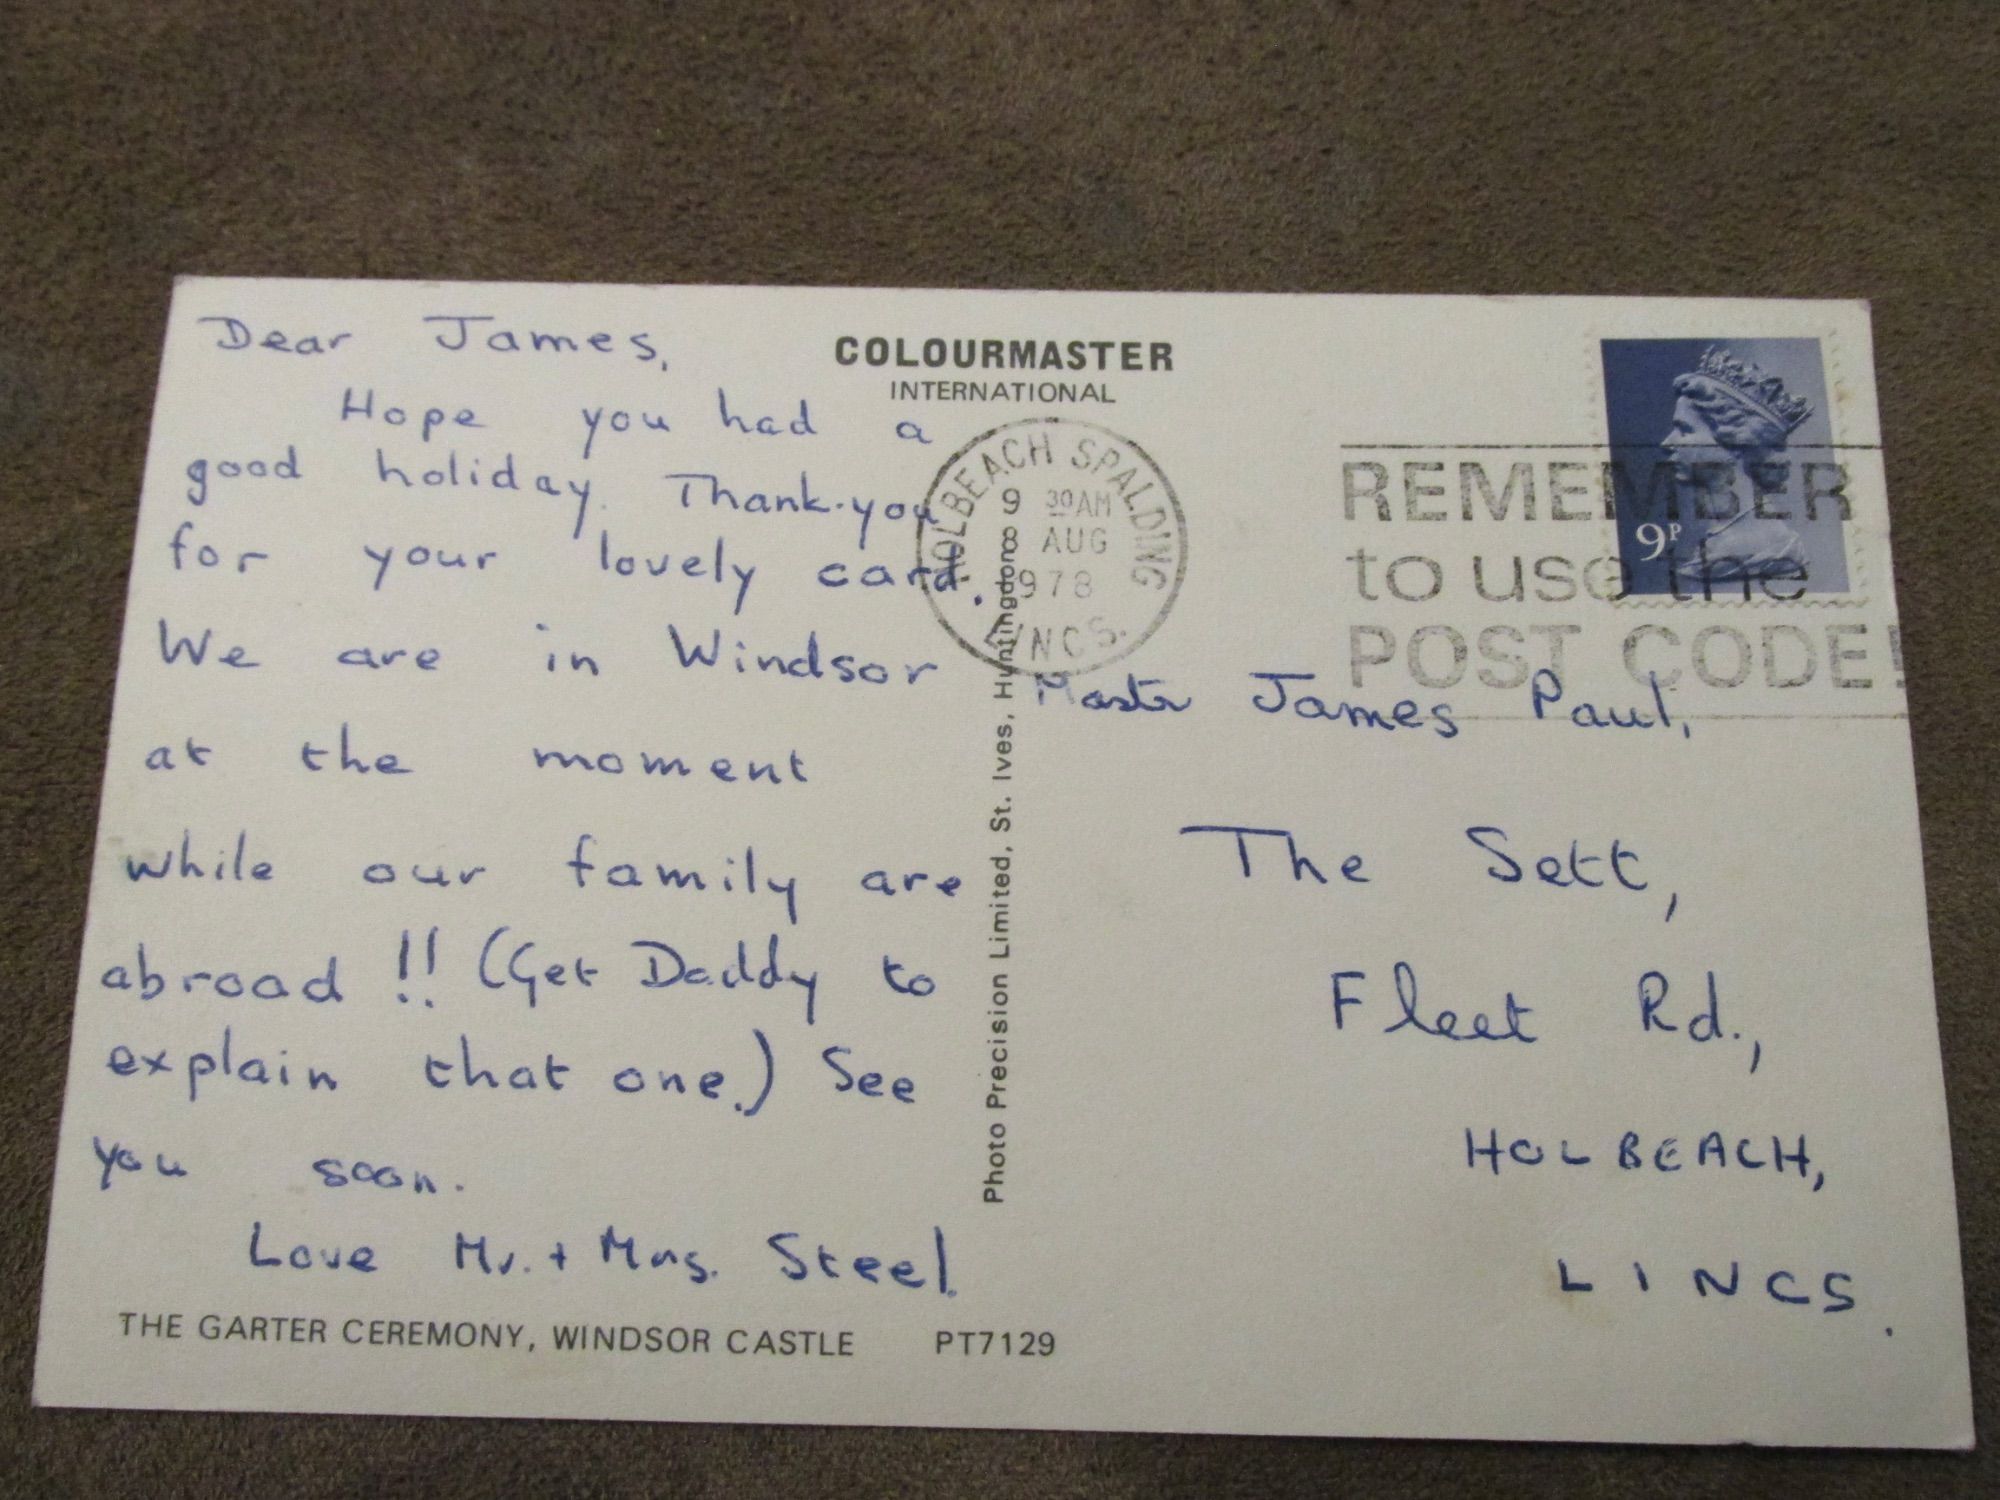 Dear James,
Hope you had a
good holiday. Thank-you
for your lovely card.
We are in Windsor
at the moment
while our family are
abroad!! (Get Daddy to
explain that one.) See
you soon.
Love Mr. + Mrs. Steel.
THE GARTER CEREMONY, WINDSOR CASTLE PT7129
COLOURMASTER
INTERNATIONAL
Photo Precision Limited, St. Ives, Huntingdon
HOLBEACH SPALDING
9 30AM
8 AUG
1978
LINCS.
REMEMBER
to use the
POST CODE!
9P
Master James Paul,
The Sett,
Fleet Rd.,
HOLBEACH,
LINCS.